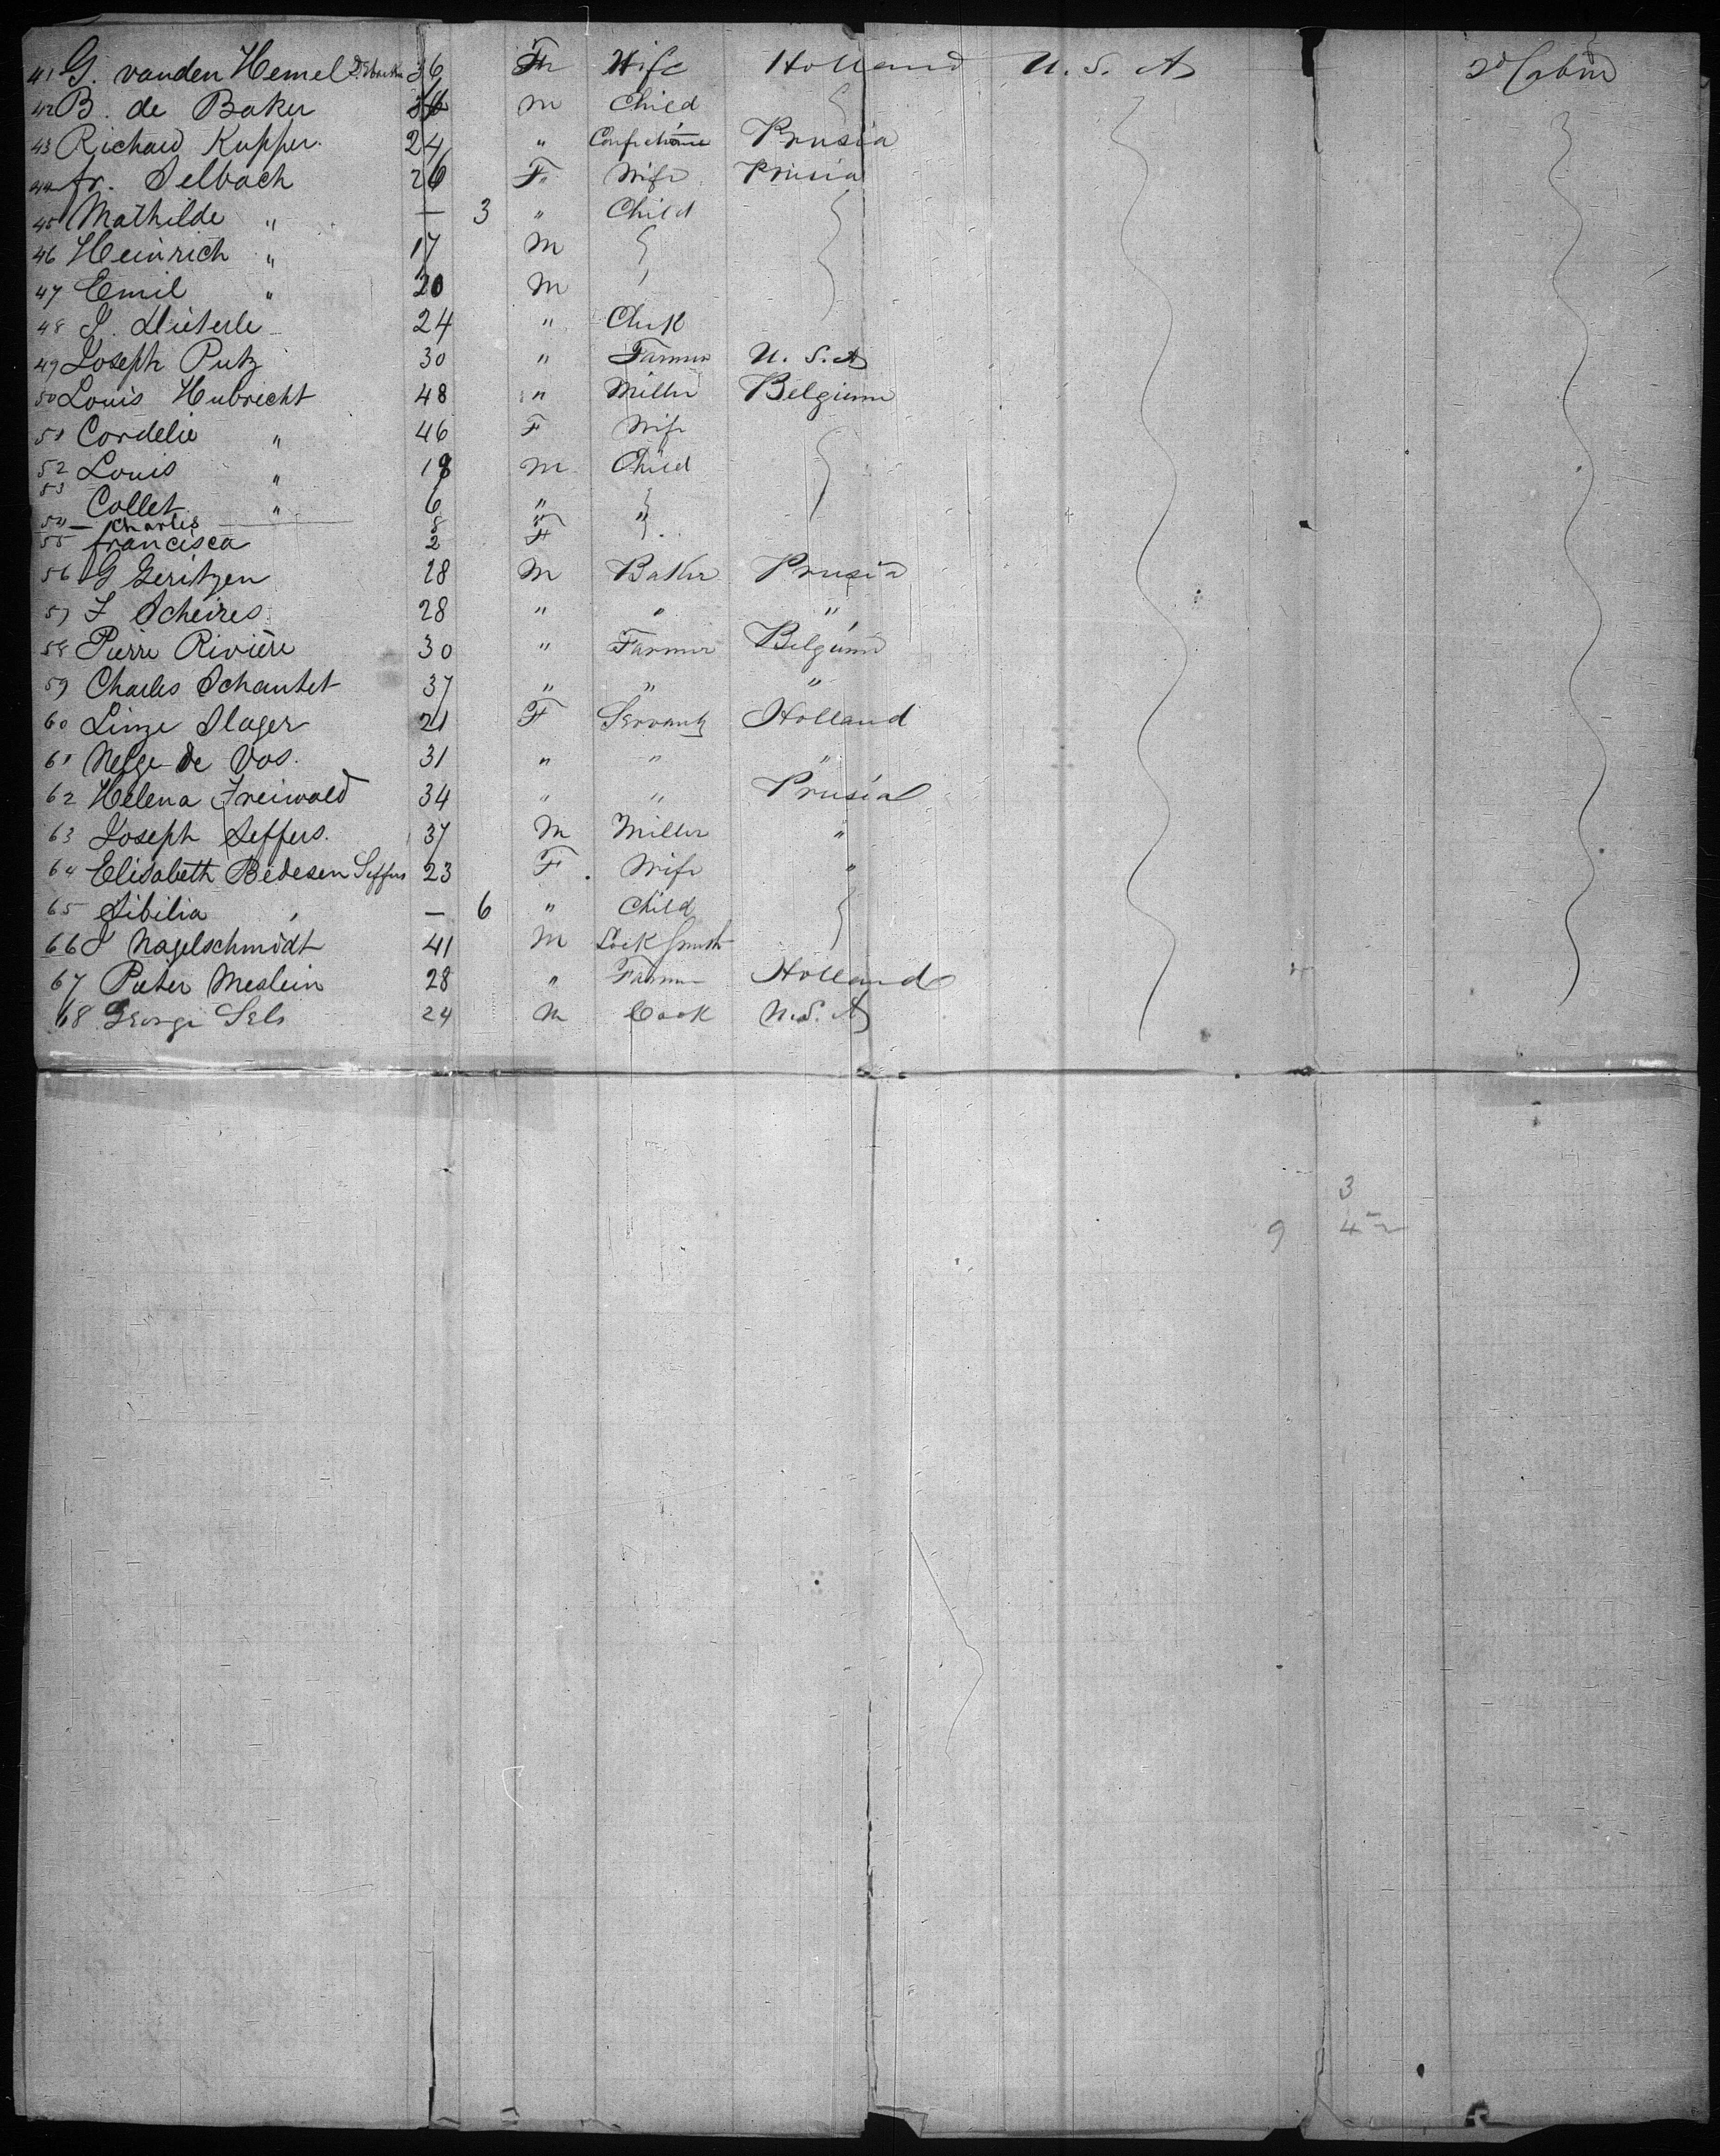 41 G. vanden Hemel 36 F Wife Holland U. S. A 2d Cabin
42 B. de Baker m Child
43 Richard Kupper. 24 " Prusia
44 fr. Selbach 26 F Wife Prusia
45 Mathilde " — 3 " Child
46 Heinrich " 17 m
47 Emil " 20 m
48 J. Dieterle 24 " Clerk
49 Joseph Putz 30 " Farmer U. S. A
50 Louis Hubrecht 48 " Miller Belgium
51 Cordelie " 46 F Wife
52 Louis " 18 m Child
53 Collet " 6 " "
54 — Charles 8 " "
55 francisca 2 F
56 G Geritzen 28 m Baker Prusia
57 J Scheires 28 " " "
58 Pierre Rivière 30 " Farmer Belgium
59 Charles Schautet 37 " " "
60 Linze Slager 21 F Servant Holland
61 Nelge de Vos. 31 " " "
62 Helena Freiwald 34 " " Prusia
63 Joseph Seffers. 37 m Miller "
64 Elisabeth Bedesen Seffers 23 F. Wife "
65 Sibilia , — 6 " Child
66 J Nagelschmidt 41 m Lock smith
67 Pieter Meslein 28 " Farmer Holland
68 George Sels 24 m Cook U.S. A
3
9 4